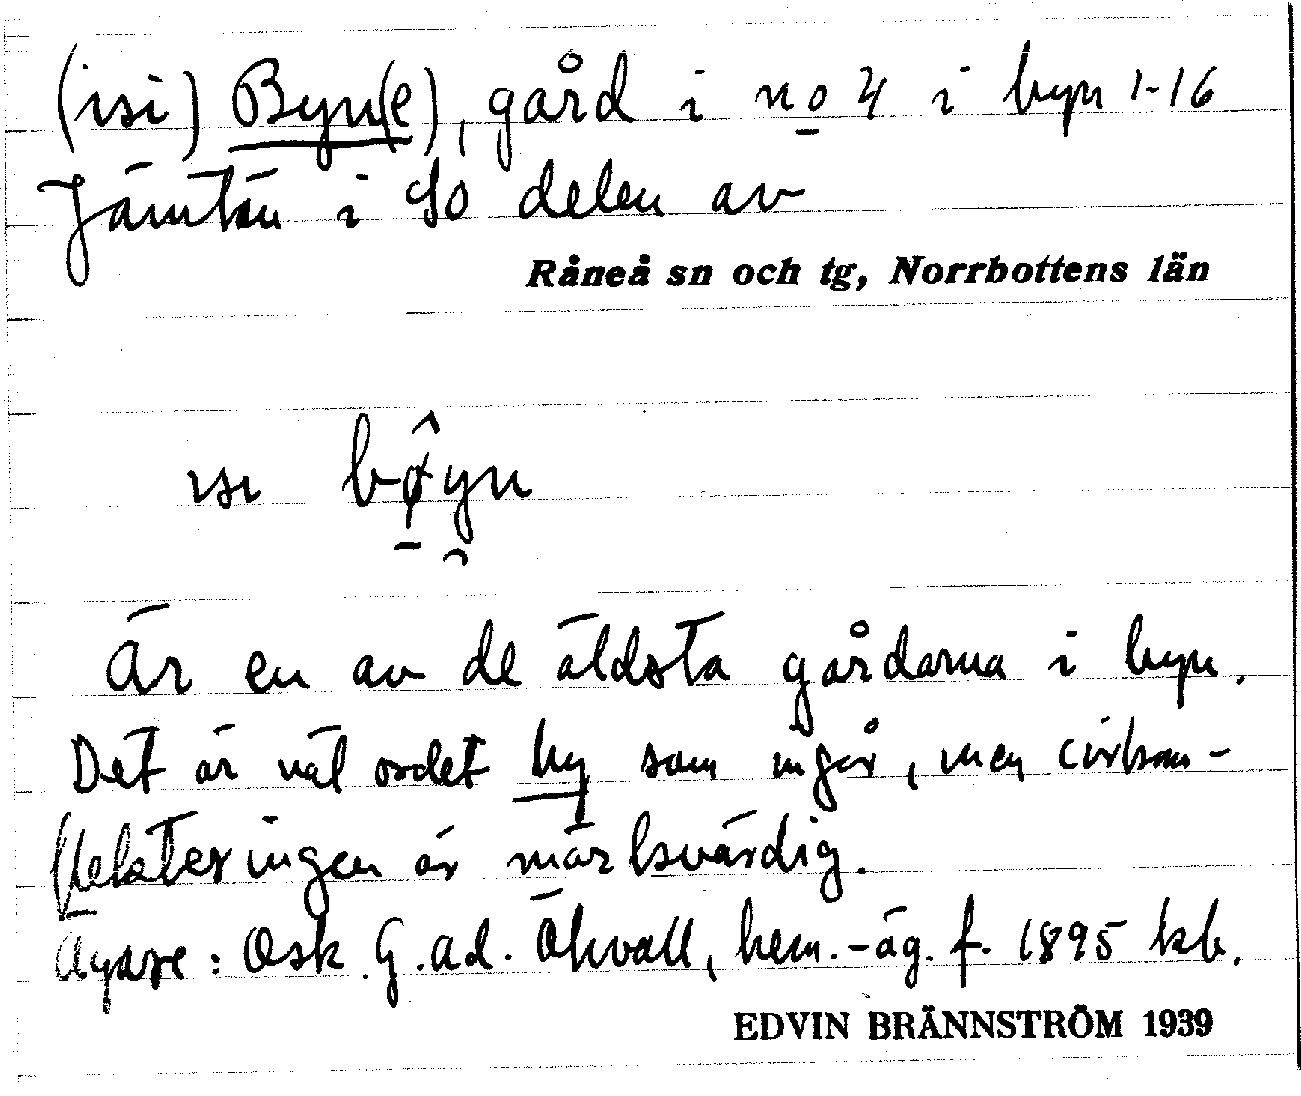 (isi) Byn(e), gård i no 4 i byn 1-16
Jämtön i SO delen av
Råneå sn och tg, Norrbottens län
ɪsɪ bø̂yn
Är en av de äldsta gårdarna i byn.
Det är väl ordet by som ingår, men cirkum-
flekteringen är märksvärdig.
Ägare: Osk. G. ad. Öhvall, hem.-äg. f. 1895 kb.
EDVIN BRÄNNSTRÖM 1939